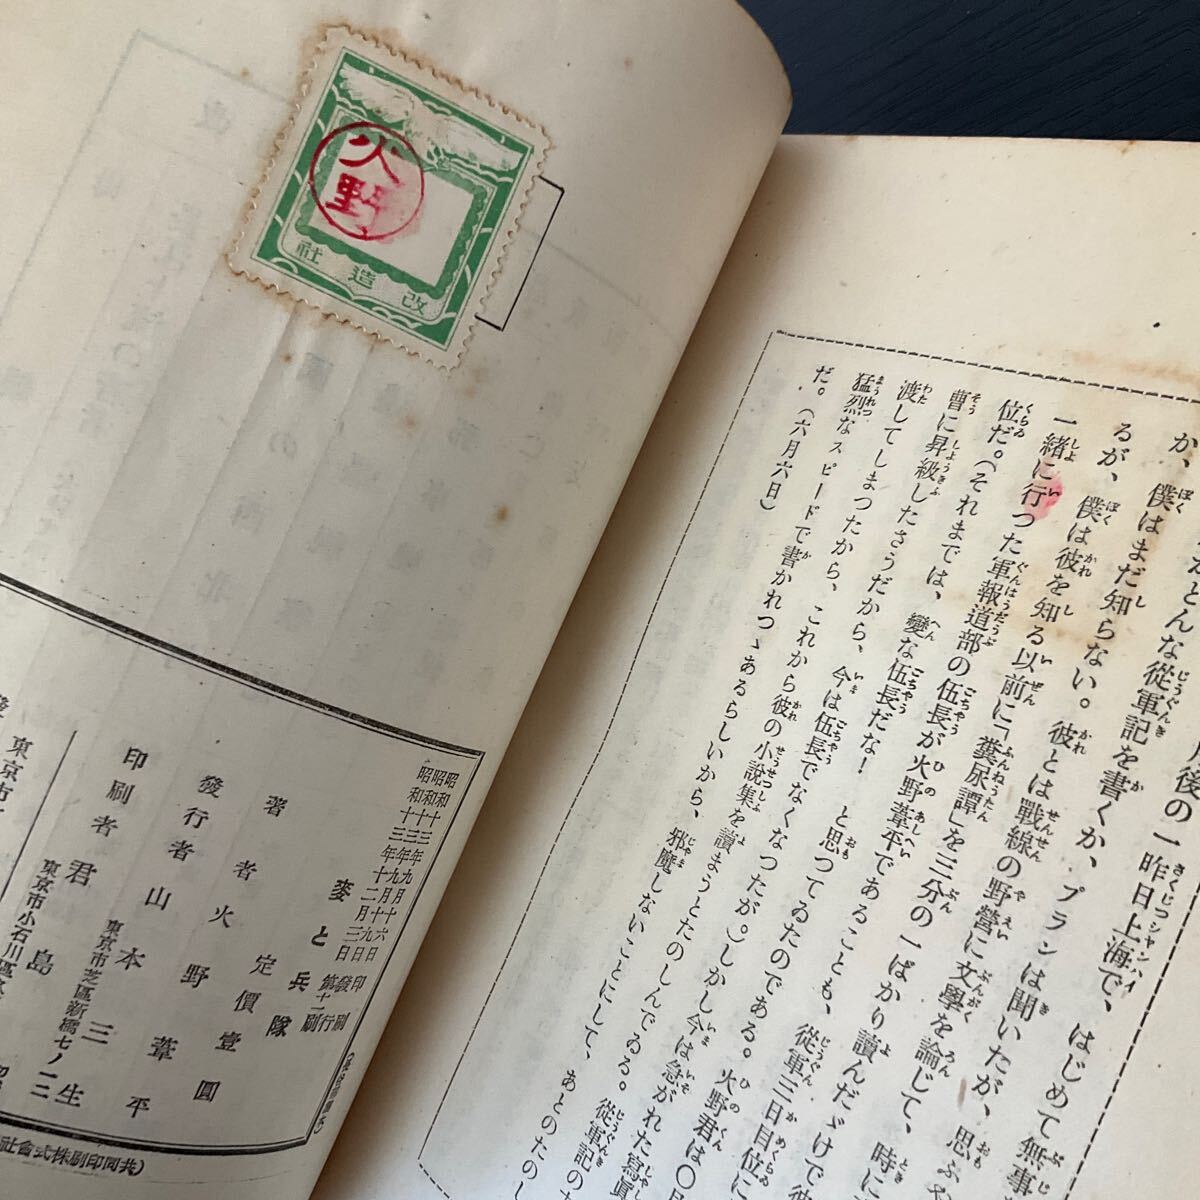 火野
改造社
か、僕はまだ知らない。彼とは戰線の野營に文學を論じて、時に
るが、僕は彼を知る以前に「糞尿譚」を三分の一ばかり讀んだゞけで彼
一緒に行つた軍報道部の伍長が火野葦平であることも、從軍三日目位に
位だ。(それまでは、變な伍長だな! と思つてゐたのである。火野君は〇
曹に昇級したさうだから、今は伍長でなくなつたが。)しかし今は急がれた寫眞
渡してしまつたから、これから彼の小說集を讀まうとたのしんでゐる。從軍記の
猛烈なスピードで書かれつゝあるらしいから、邪魔しないことにして、あとのたのし
だ。(六月六日)
昭和十三年九月十六日印刷
昭和十三年九月十九日發行
昭和十三年十二月三日第十一刷
麥と兵隊
定價壹圓
著者 火野葦平
發行者 山本三生
東京市芝區新橋七ノ一二
印刷者 君島
東京市小石川區
東京市
(共同印刷株式會社